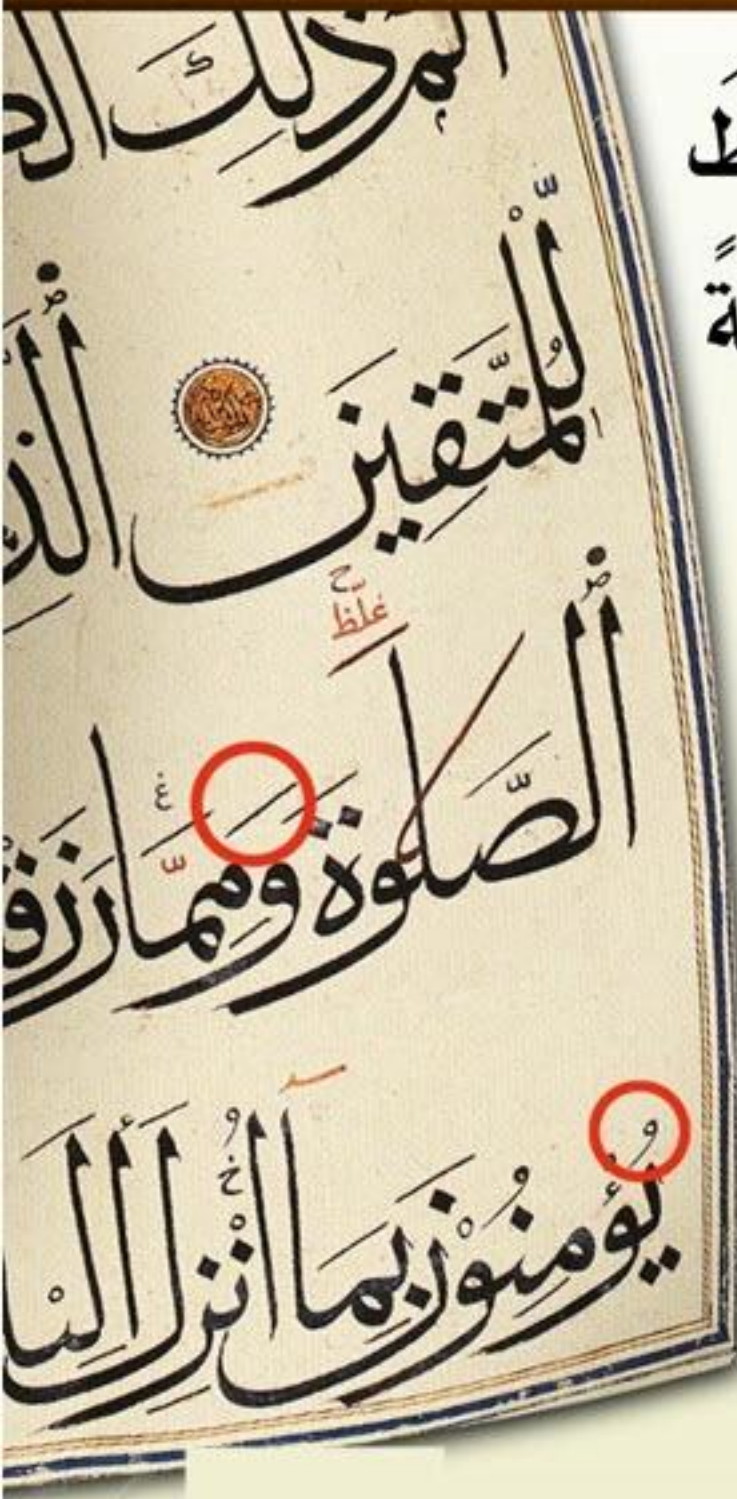 الم ذَلِكَ الك
لِّلْمُتَّقِينَ الَّذِ
غلّظ
الصَّلوةَ وَمِمَّا رَزَقْ
يُؤْمِنُونَ بِمَا أُنْزِلَ إِلَيْ